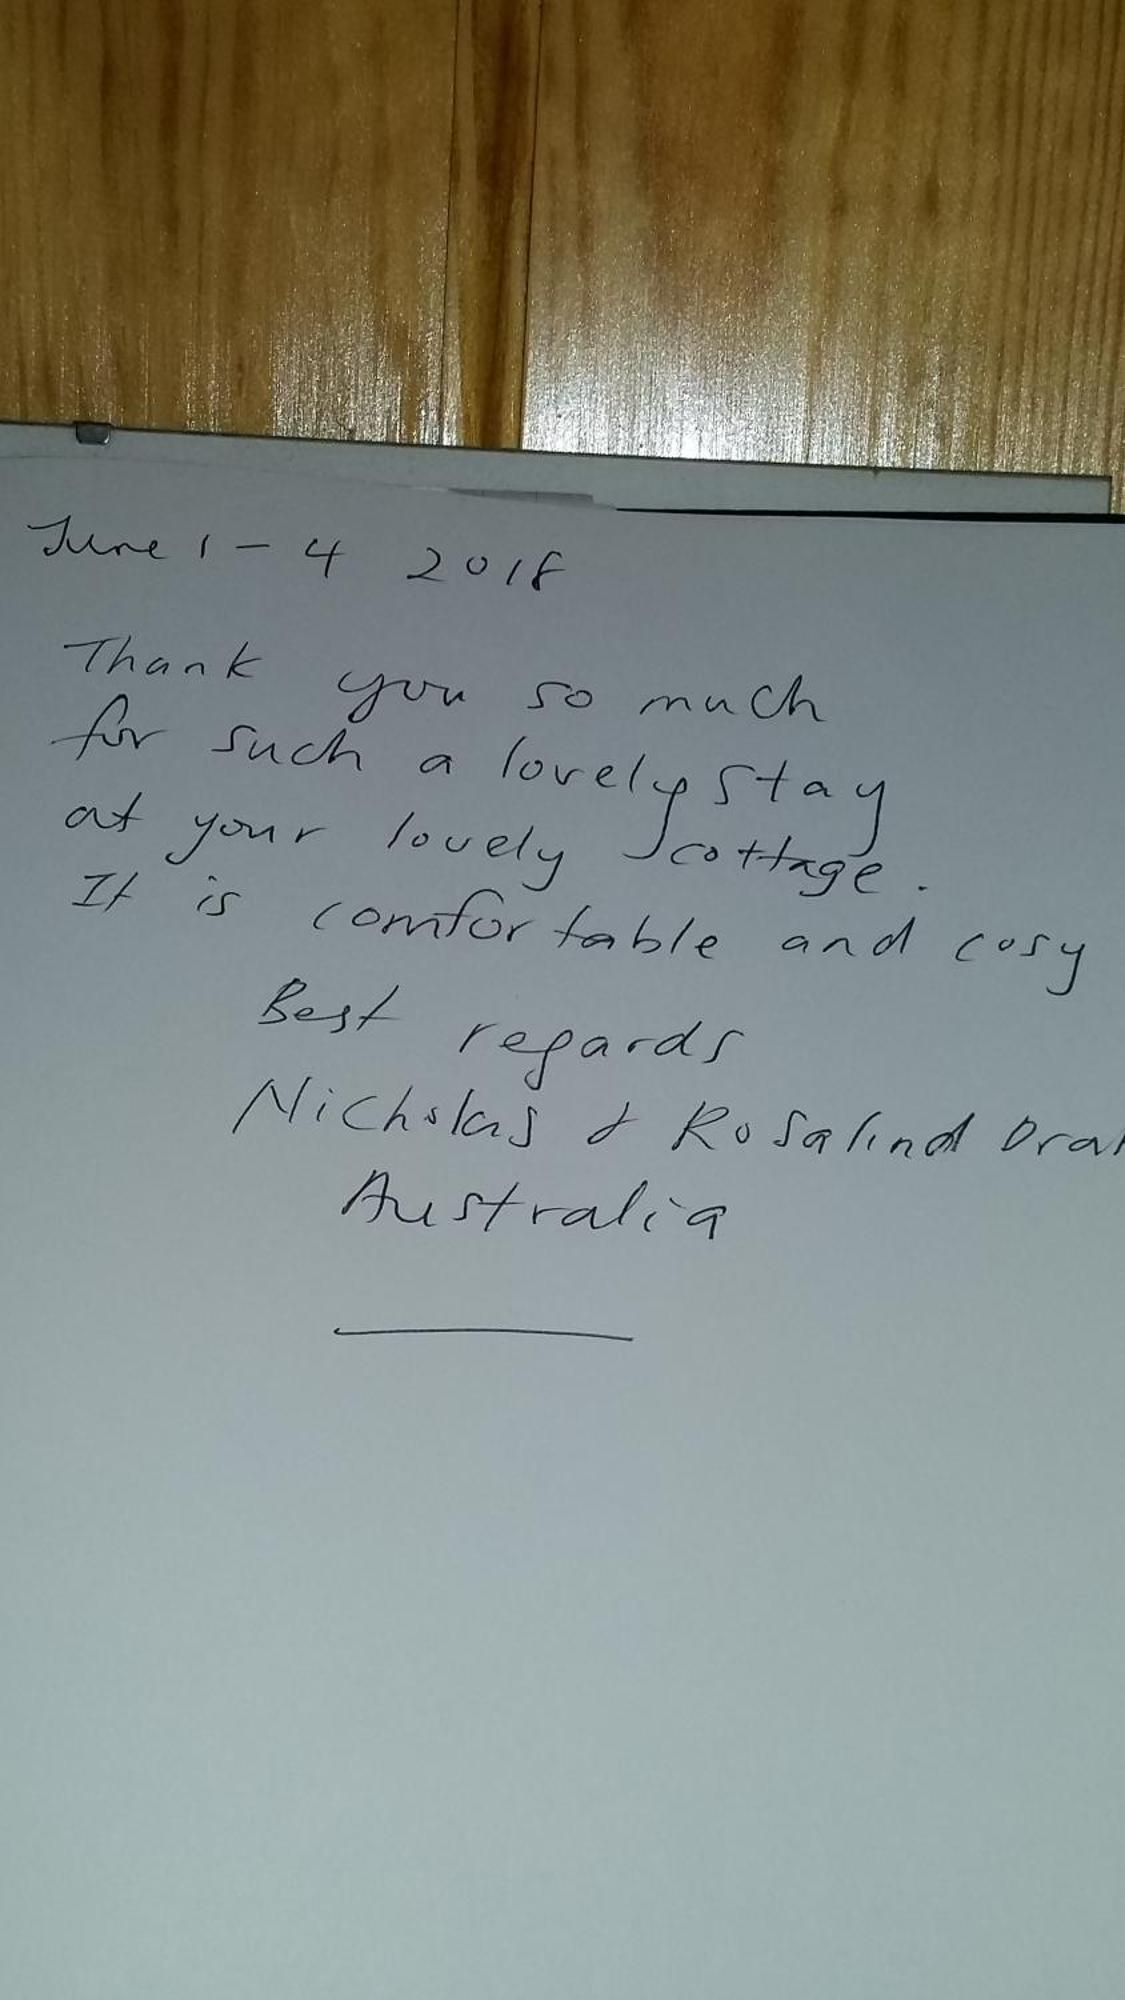 June 1 - 4 2018
Thank you so much
for such a lovely stay
at your lovely cottage.
It is comfortable and cosy
Best regards
Nicholas & Rosalind
Australia